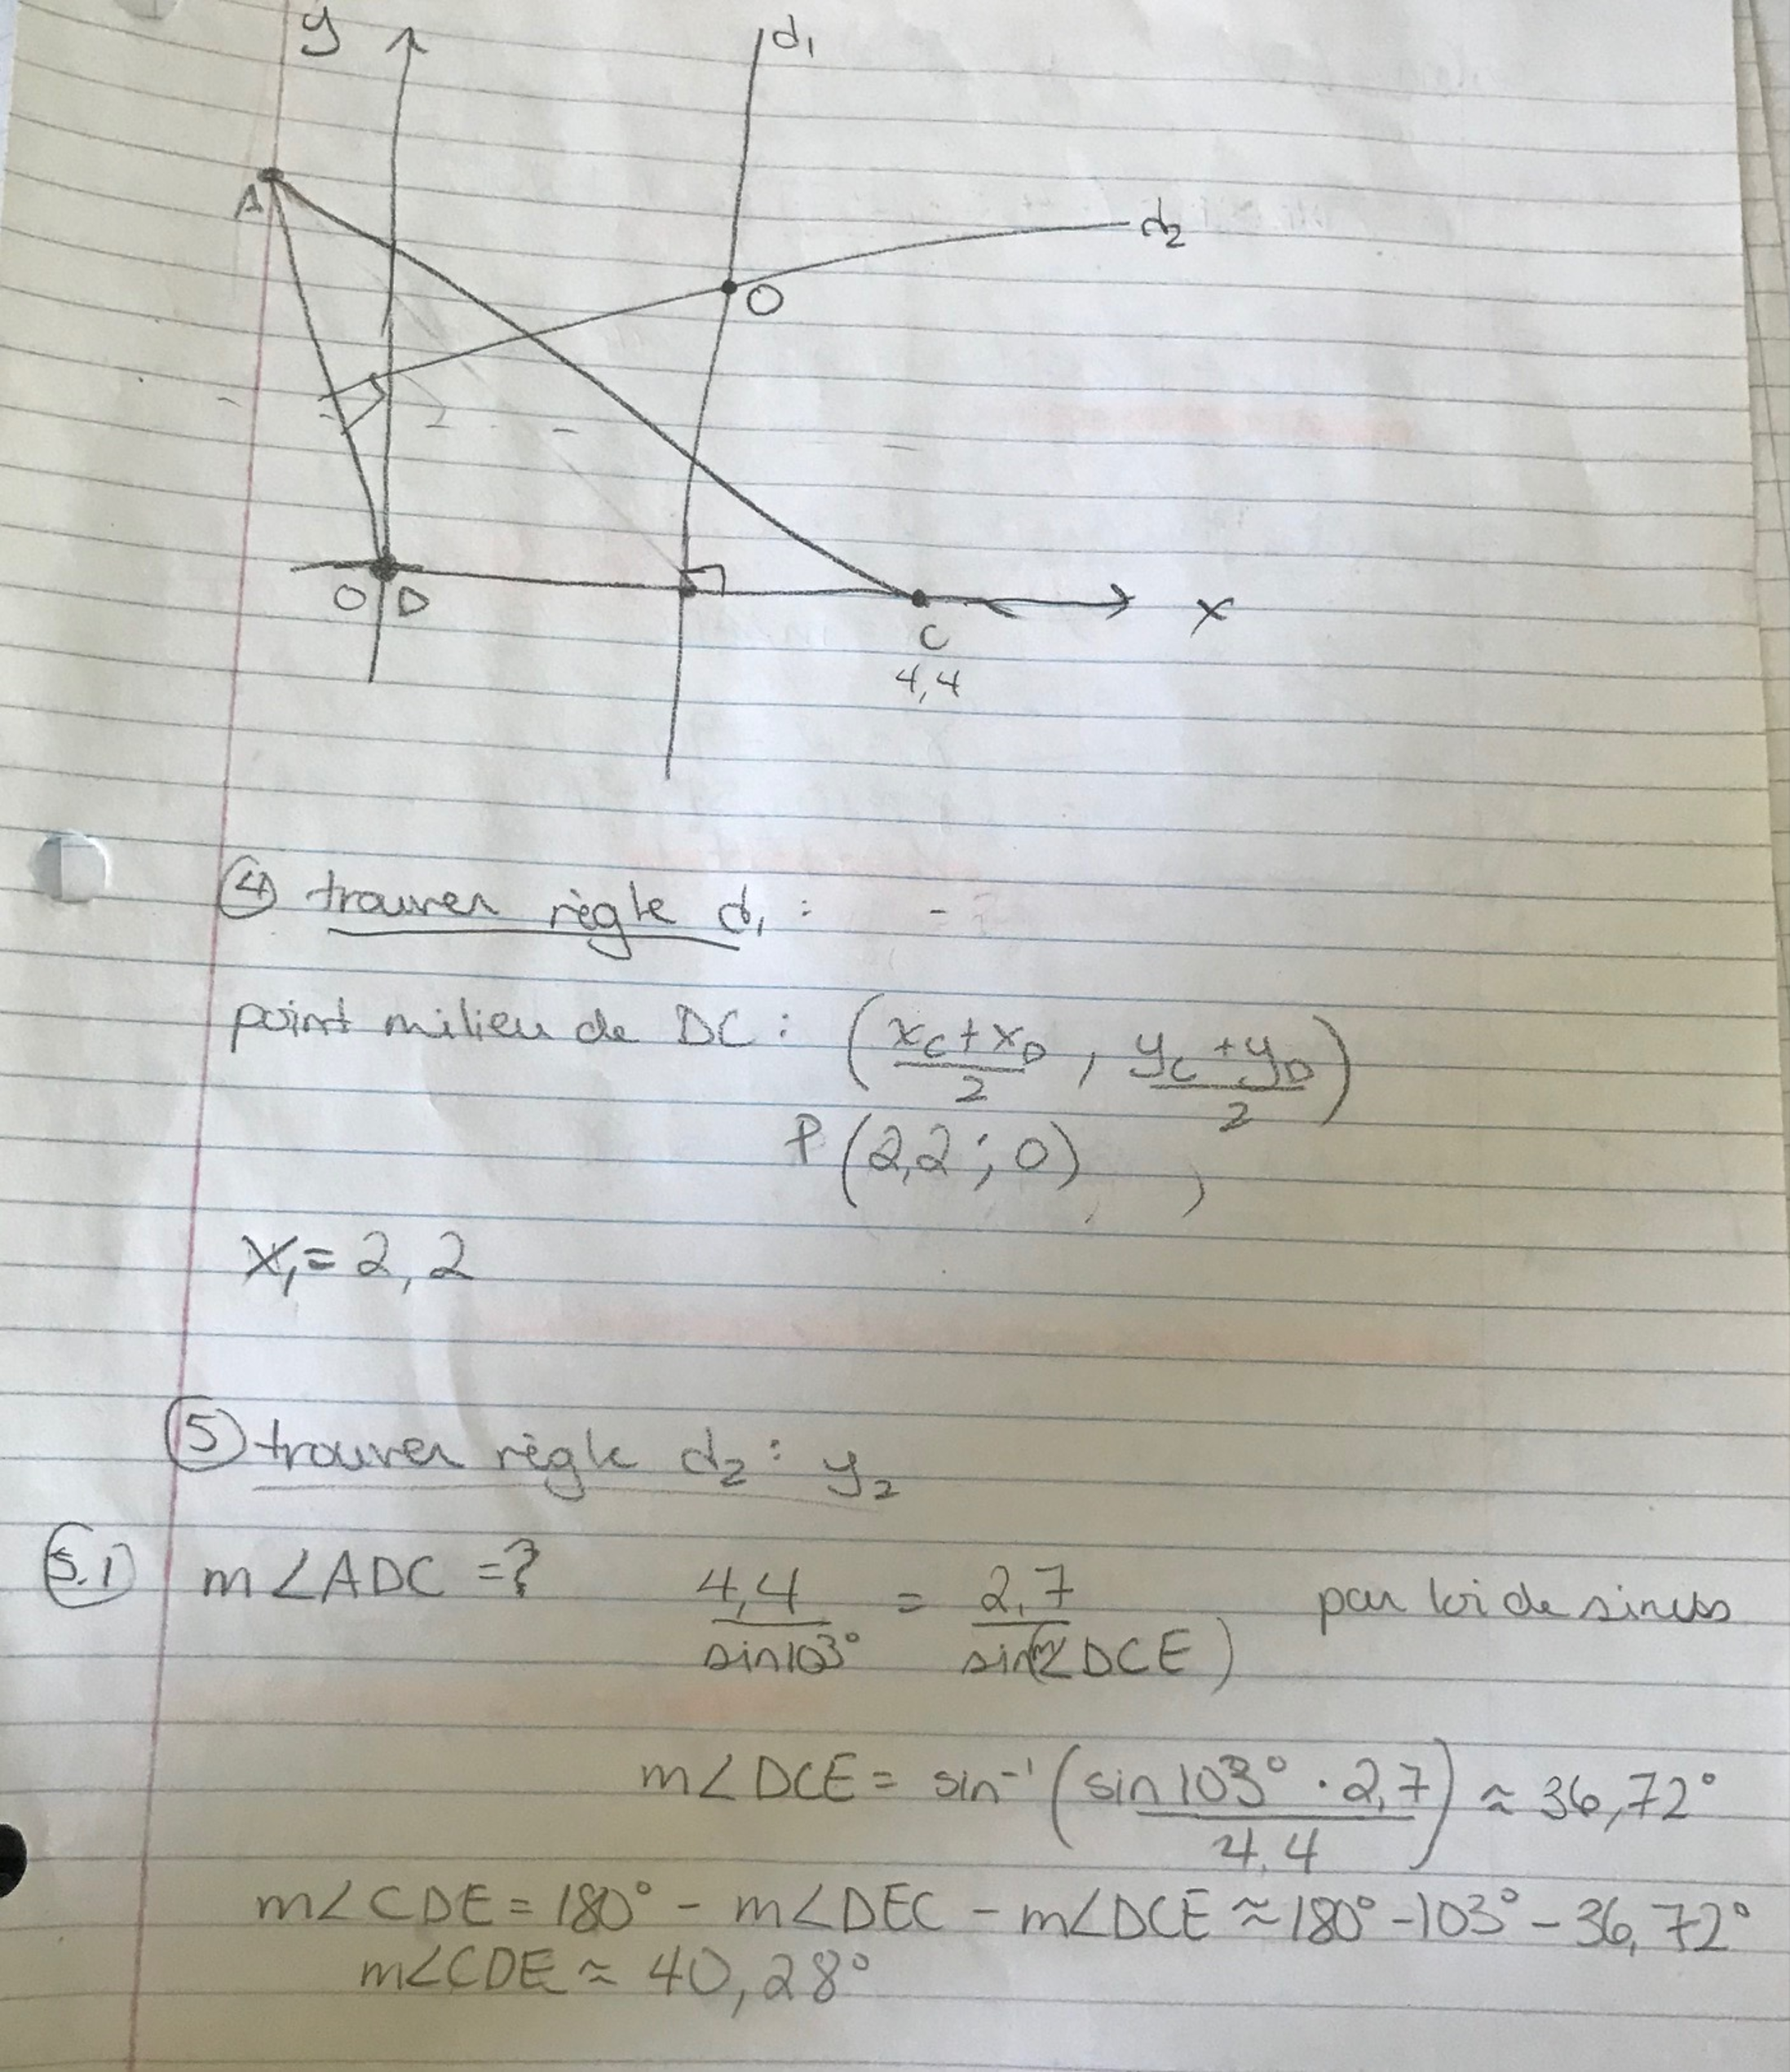 y
d₁
A
d₂
O
O D
C
x
4,4
④ trouver règle d₁ :
point milieu de DC : (x_C + x_D / 2 , y_C + y_D / 2)
P(2,2 ; 0)
x₁ = 2,2
⑤ trouver règle d₂ : y₂
5.1 m∠ADC = ? 4,4 / sin103° = 2,7 / sin(m∠DCE) par loi de sinus
m∠DCE = sin⁻¹ (sin103° · 2,7 / 4,4) ≈ 36,72°
m∠CDE = 180° - m∠DEC - m∠DCE ≈ 180° - 103° - 36,72°
m∠CDE ≈ 40,28°